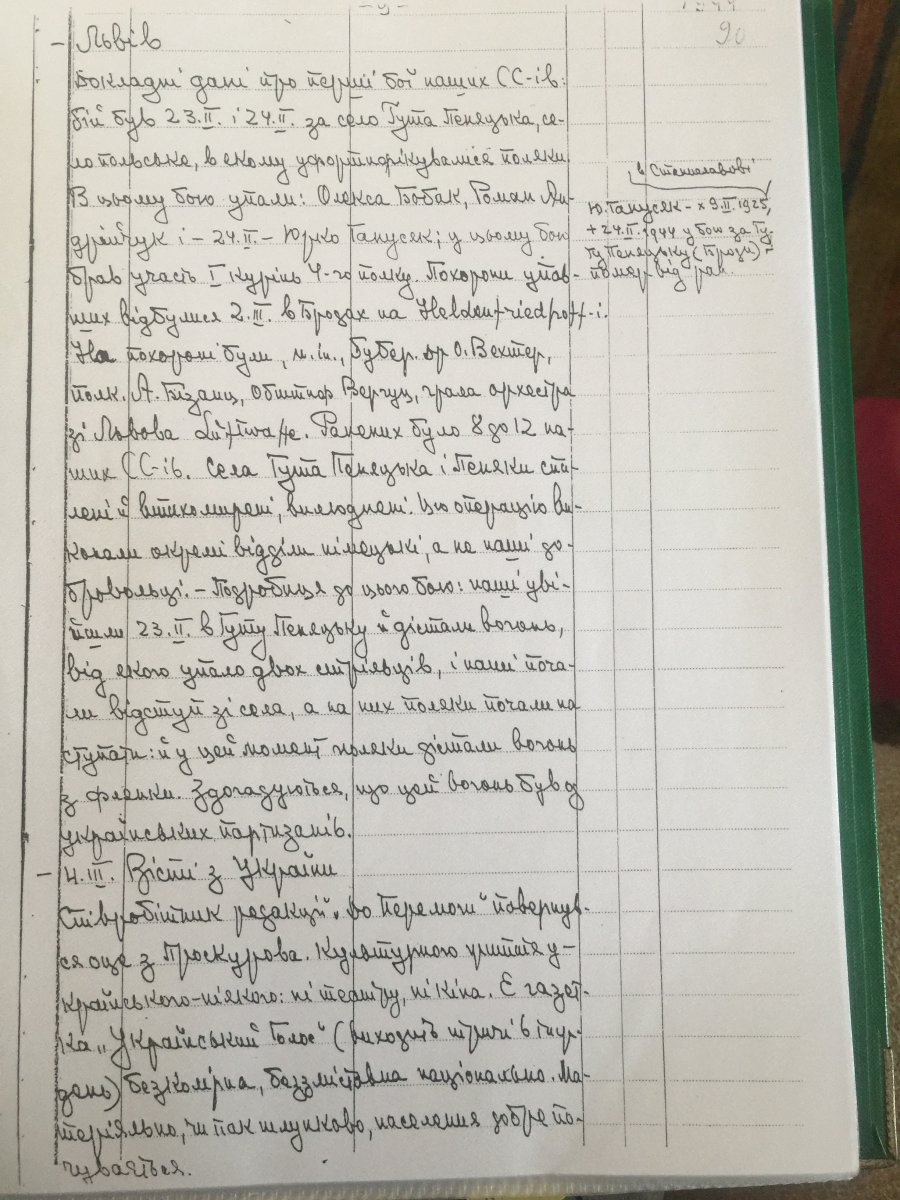 - 9 -
1944
90
– Львів
Докладні дані про перші бої наших СС-ів:
бій був 23.II. і 24.II. за село Гута Пеняцька, се-
ло польське, в якому уфортифікувалися поляки
В цьому бою упали: Олекса Бобак, Роман Ан-
дрійчук і – 24.II. – Юрко Ганусяк; у цьому бою
брав участь I курінь 4-го полку. Похорони упав-
ших відбулися 2.III. в Бродах на Heldenfriedhoff-і.
На похороні були, м.ін., Губер. др О. Вехтер,
полк. А. Бізанц, обштпф Вергун, грала оркестра
зі Львова Luftwaffe. Ранених було 8 до 12 на-
ших СС-ів. Села Гута Пеняцька і Пеняки спа-
лені й виліднені. Цю операцію ви-
конали окремі відділи німецькі, а не наші до-
бровольці. – Подробиця до цього бою: наші уві-
йшли 23.II. в Гуту Пеняцьку й дістали вогонь,
від якого упало двох стрільців, і наші поча-
ли відступ зі села, а на них поляки почали на
ступати: й у цей момент поляки дістали вогонь
з флянки. Здогадуються, що цей вогонь був од
українських партизанів.
в Станиславові
Ю. Ганусяк – × 9.II.1925,
+ 24.II.1944 у бою за Гу-
ту Пеняцьку (Броди) –
помер від ран.
– 4.III. Вісті з України
Співробітник редакції „До Перемоги" повернув-
ся оце з Проскурова. Культурного життя у-
країнського – ніякого: ні театру, ні кіна. Є газет-
ка „Український Голос" (виходить тричі в тиж-
день) безколірна, беззмістовна національно. Ма-
теріяльно, чи пак шлунково, населення добре по-
чувається.